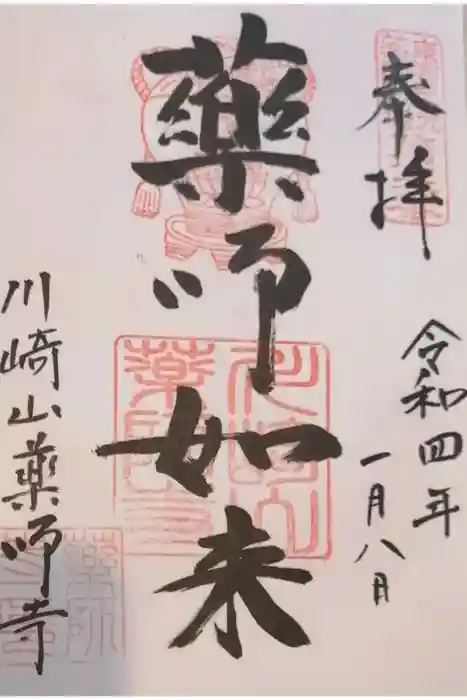 奉拝
令和四年
一月八月
薬師如来
川﨑山薬師寺